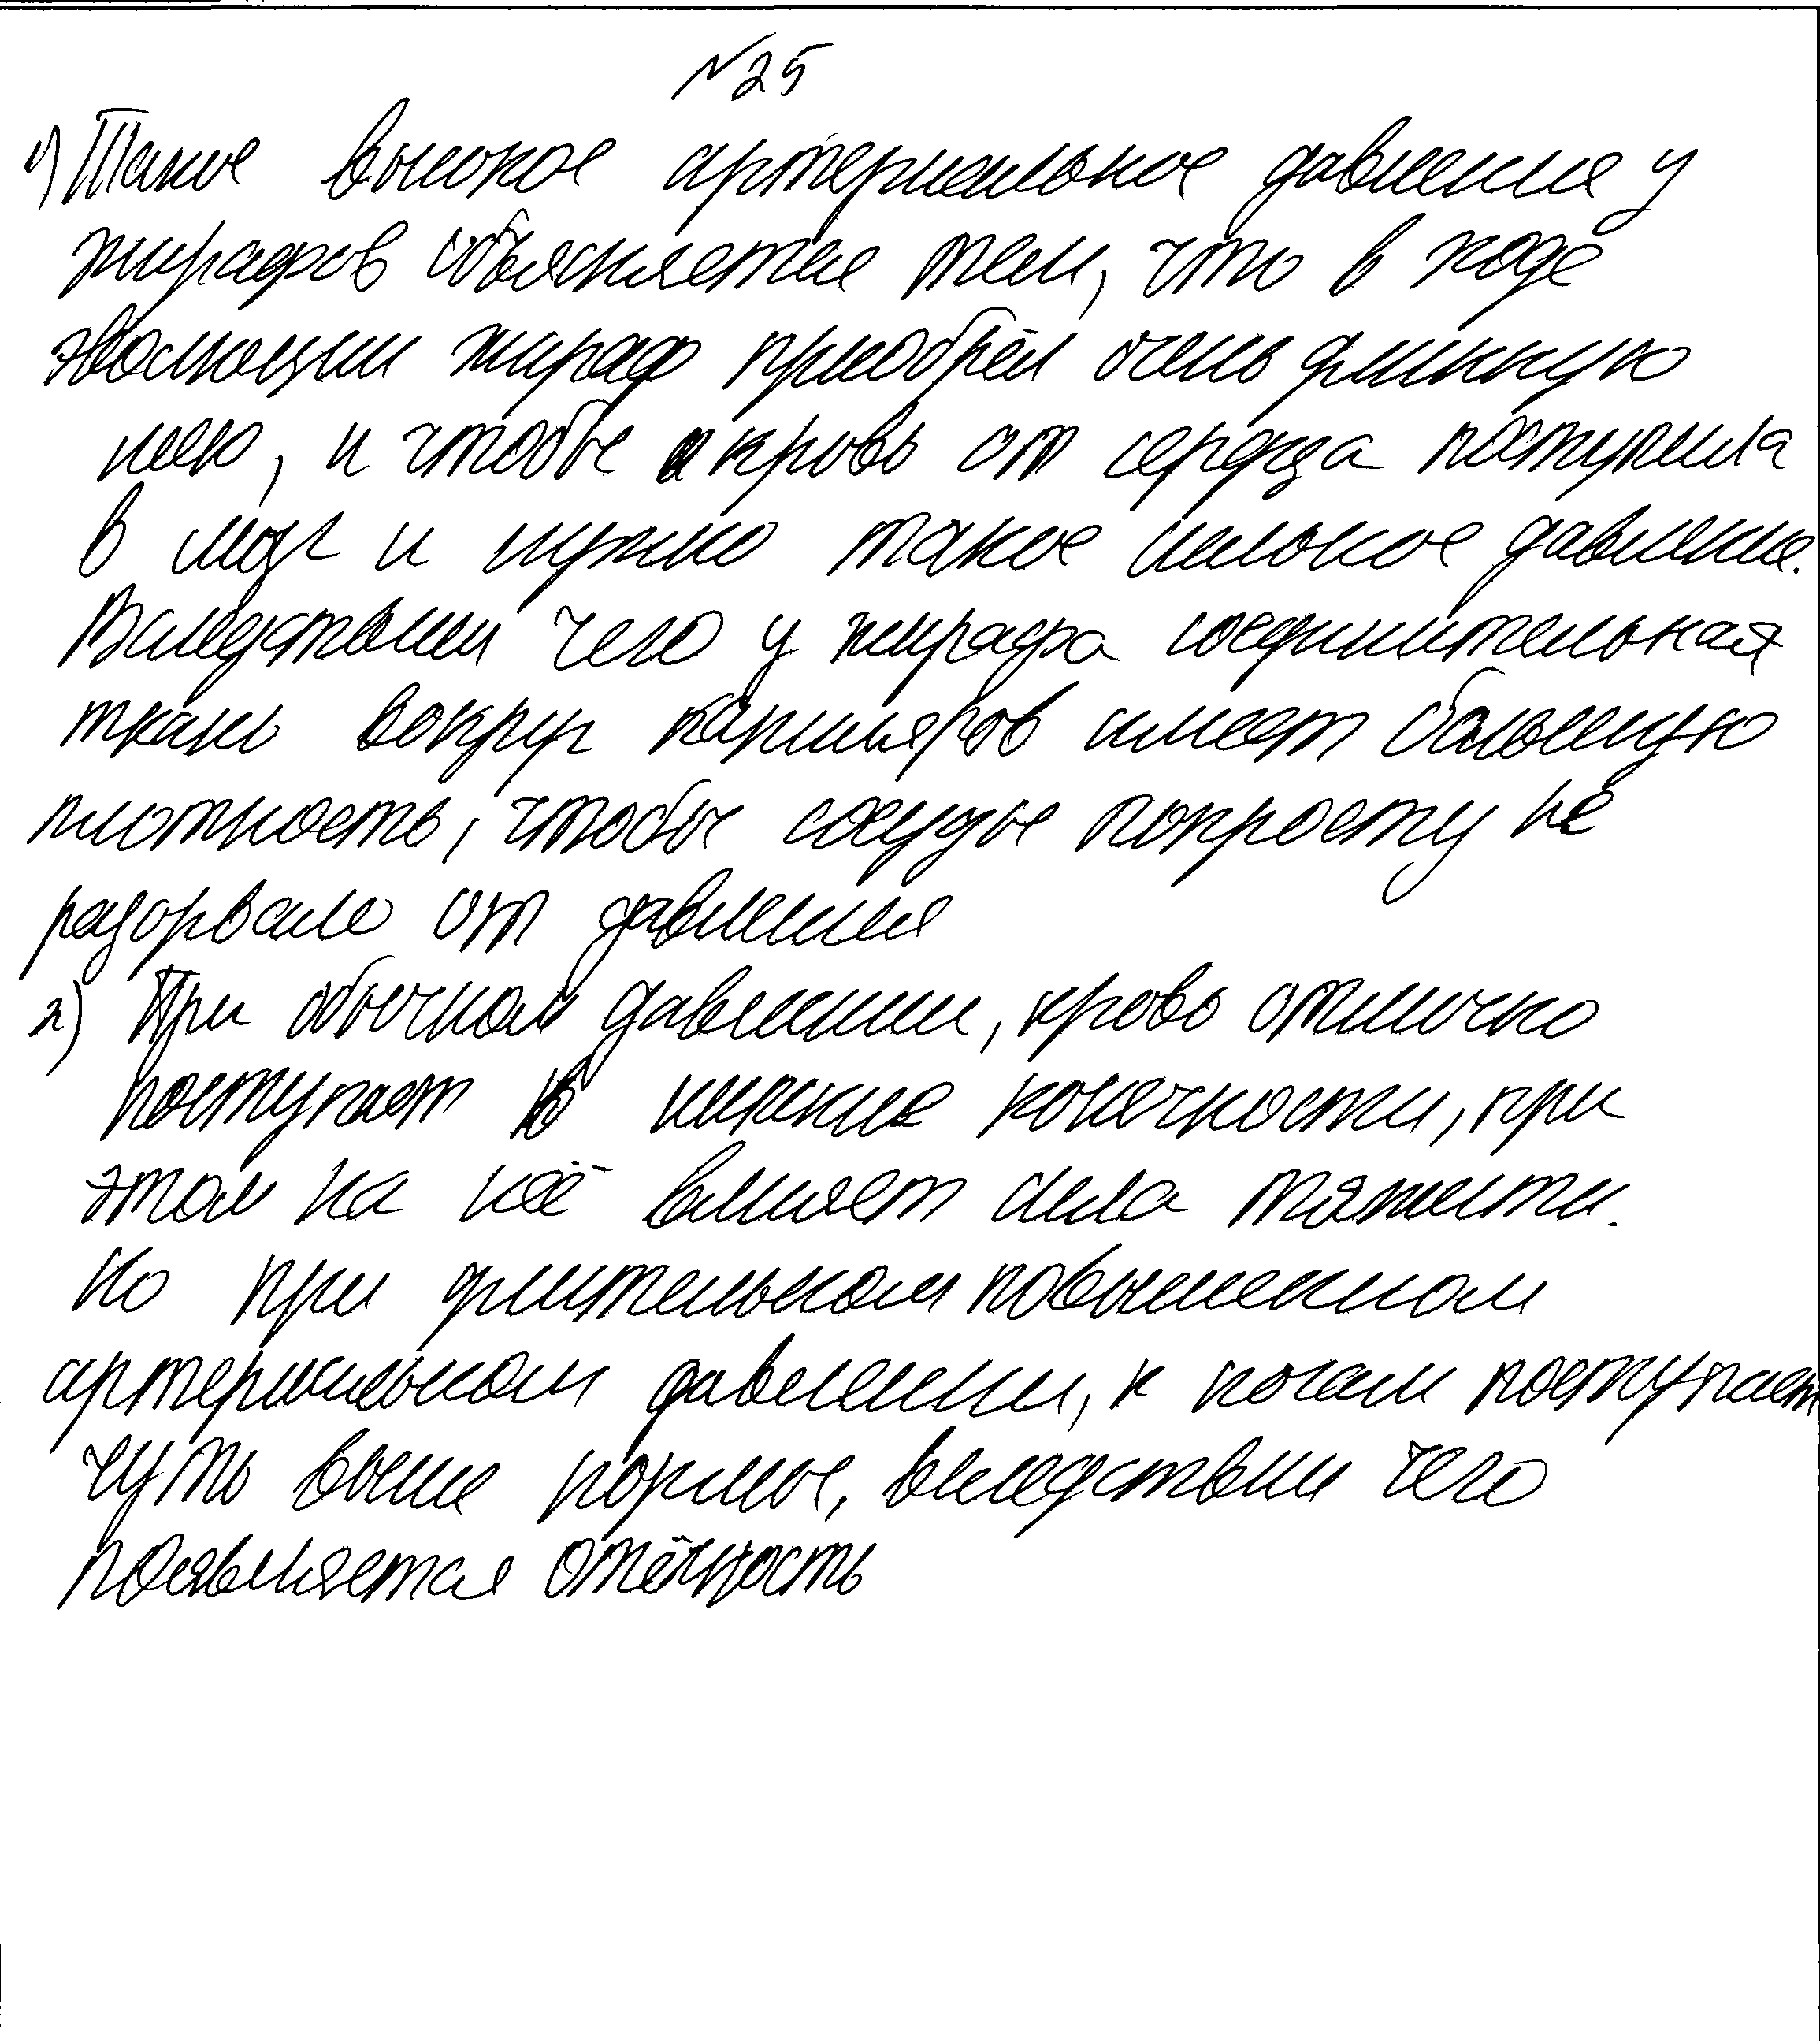 №25
1) Такое высокое артериальное давление у
жирафов объясняется тем, что в ходе
эволюции жираф приобрёл очень длинную
шею, и чтобы кровь от сердца поступила
в мозг и нужно такое сильное давление.
Вследствыии чего у жирафа соединительная
ткань вокруг капилляров имеет большую
плотность, чтобы сосуды попросту не
разорвало от давления
2) При обычном давлении, кровь отлично
поступает в нижние конечности, при
этом на неё влияет сила тяжести.
Но при длительном повышенном
артериальном давлении, к ногам поступает
чуть выше нормы, вследствии чего
появляется отёчность